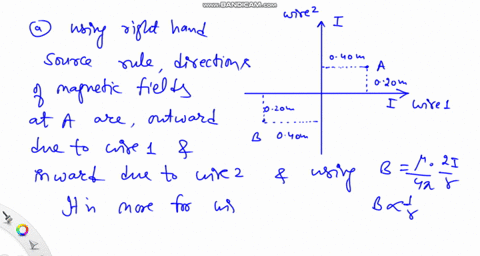 WWW.BANDICAM.COM
wire2
I
(a) using right hand
Source rule, directions
of magnetic fields
at A are, outward
due to wire 1 &
inward due to wire 2 & using B = μ0/4π 2I/r
It is more for wi
B ∝ 1/r
0.40m
A
0.20m
I wire 1
0.20m
B 0.40m